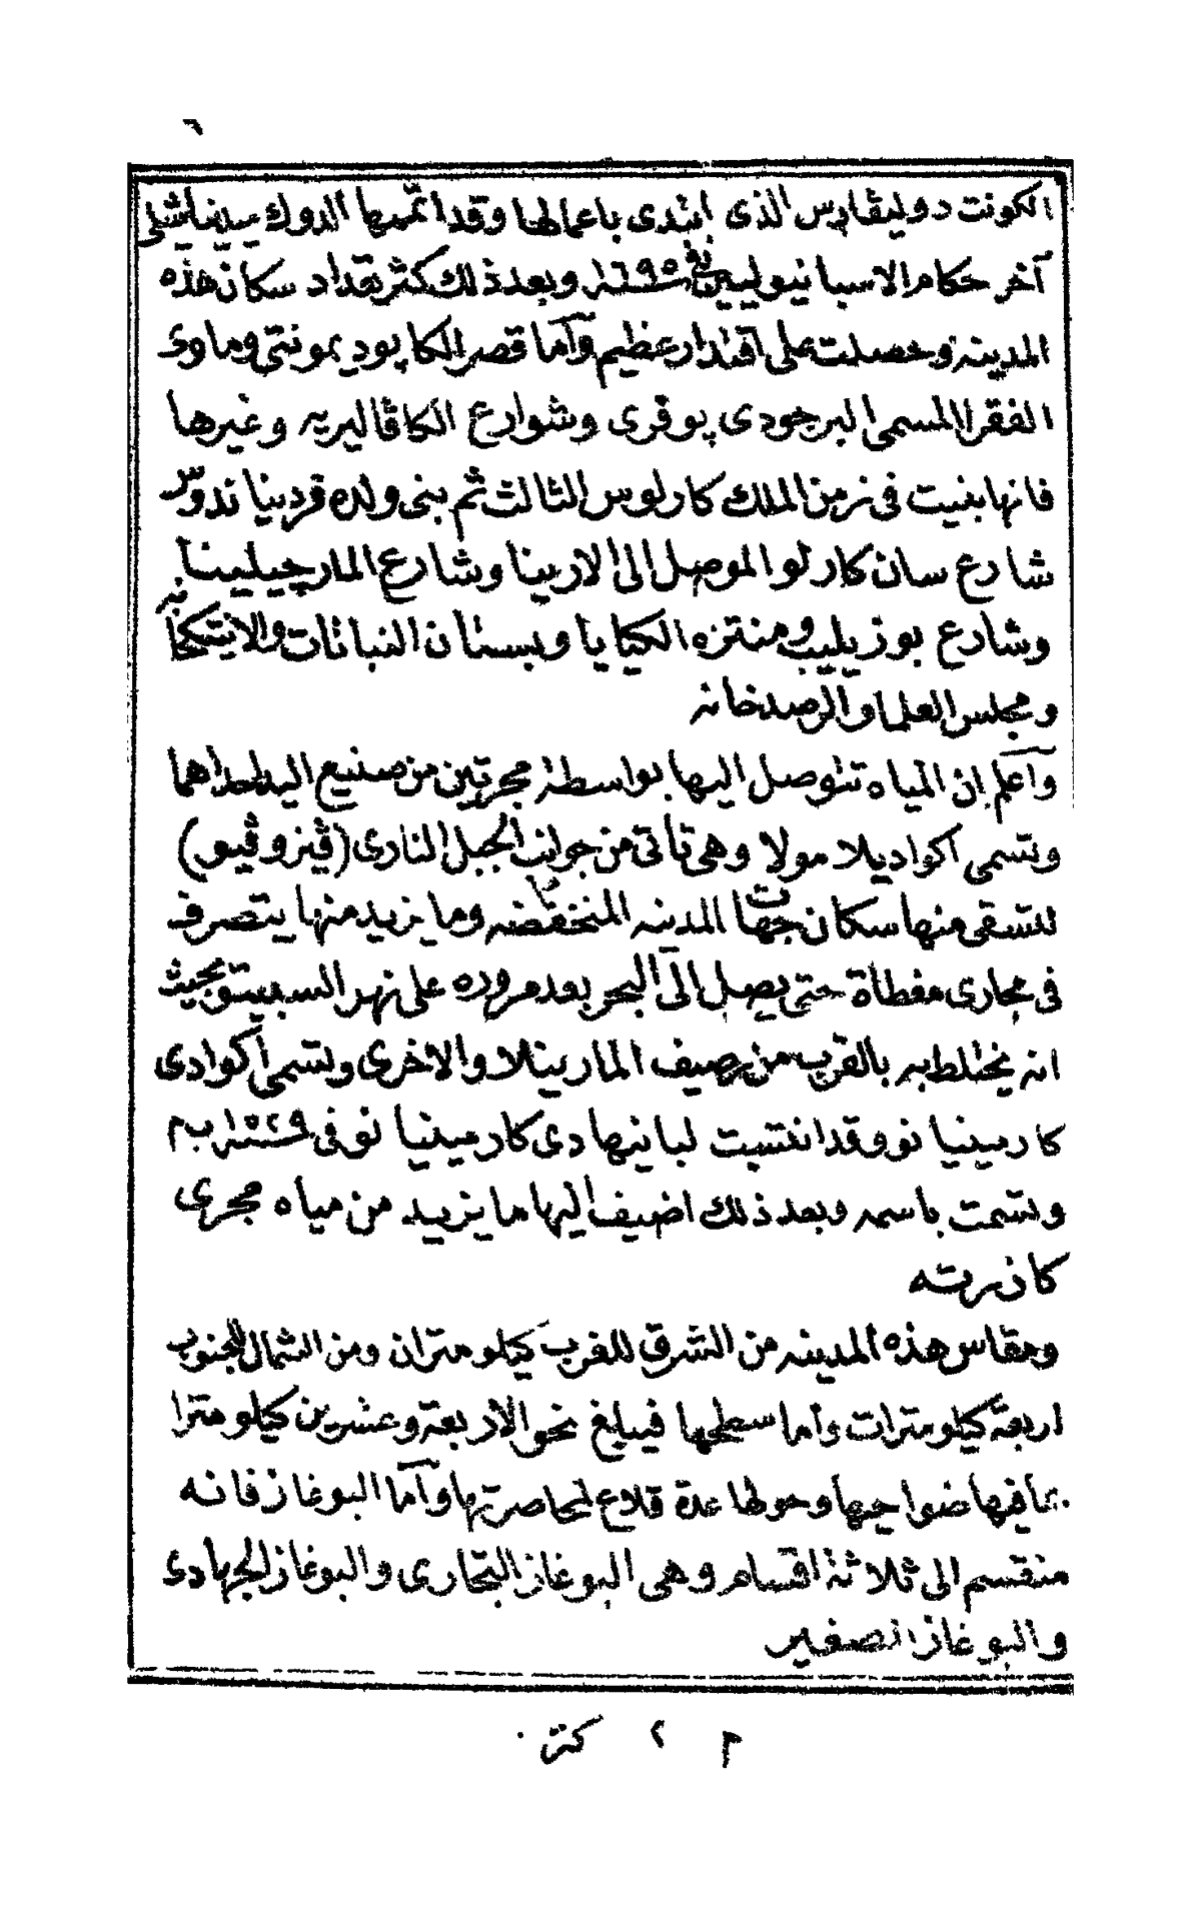 ٦
الكونت دوليڤارس الذى ابتدى باعمالها وقد اتمها الدوك ميديناشيلى
آخر حكام الاسبانيوليين فى سنة ١٦٩٥ وبعد ذلك كثر تعداد سكان هذه
المدينه وحصلت على اقتدار عظيم وآما قصر الكاپوديمونتى وماوى
الفقرا المسمى البرجودى پوڤرى وشوارع الكاڤاليريه وغيرها
فانها بنيت فى زمن الملك كارلوس الثالث ثم بنى ولده فرديناندوس
شارع سان كارلو الموصل الى الارينا وشارع المارجيلينا
وشارع بوزيليب ومنتزه الكيايا وبستان النباتات والانتكخانه
ومجلس العلما والرصدخانه
وآعلم ان المياه تتوصل اليها بواسطة مجرتين من صنيع اليد احداهما
وتسمى اكواديلا مولا وهى تأتى من جوانب الجبل النارى (ڤيزوڤيو)
لتسقى منها سكان جهات المدينه المنخفضه وما يزيد منها يتصرف
فى مجارى مغطاة حتى يصل الى البحر بعد مروره على نهر السبيتو بحيث
انه يختلط به بالقرب من رصيف المارينلا والاخرى وتسمى أكوادى
كارمينيا نو وقد انتسبت لبانيها دى كارمينيا نو فى سنة ١٥٢٩ ب م
وتسمت باسمه وبعد ذلك اضيف اليها ما يزيد من مياه مجرى
كازرته
ومقاس هذه المدينه من الشرق للغرب كيلو متران ومن الشمال للجنوب
اربعة كيلو مترات وأما سطحها فيبلغ نحو الاربعة وعشرين كيلو مترا
بما فيها ضواحيها وحولها عدة قلاع لمحاصرتها وآما البوغاز فانه
منقسم الى ثلاثة اقسام وهى البوغاز التجارى والبوغاز الجهادى
والبوغاز الصغير
م ٢ كنز